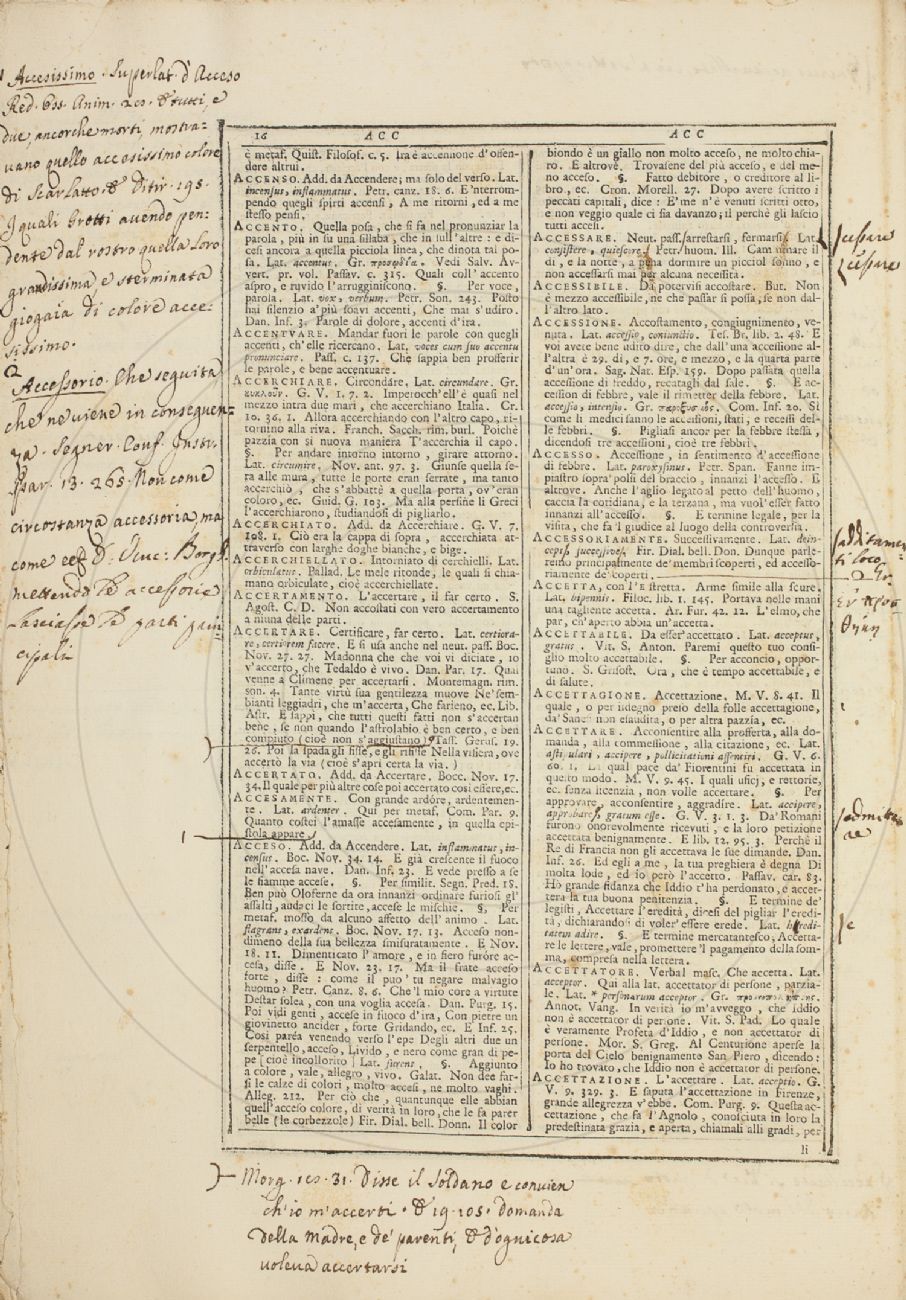 Accesissimo. Superlat. d'Acceso
Red. Oss. Anim. 20. & tutti, e
due, ancorche morti, mostra=
vano quello accesissimo colore
di Scarlatto. & Ditir. 195.
I quali Grotti avendo pen:
dente dal rostro quella loro
grandissima e sterminata
giogaia di colore acce-
sissimo.
Accessorio. Che seguita
che ne viene in conseguen=
za. Segner. Conf. Instr.
par. 13. 265. Non come
circostanza accessoria, ma
come
mettendo le accessorie
lasciasse le parti prin
cipali
16 ACC
è metaf. Quist. Filosof. c. 5. Ira è accensione d'offen-
dere altrui.
ACCENSO. Add. da Accendere; ma solo del verso. Lat.
incensus, inflammatus. Petr. canz. 18. 6. E'nterrom-
pendo quegli spirti accensi, A me ritorni, ed a me
stesso pensi.
ACCENTO. Quella posa, che si fa nel pronunziar la
parola, più in su una sillaba, che in sull'altre: e di-
cesi ancora a quella picciola linea, che dinota tal po-
sa. Lat. accentus. Gr. προσῳδία. Vedi Salv. Av-
vert. pr. vol. Passav. c. 315. Quali coll'accento
aspro, e ruvido l'arrugginiscono. §. Per voce,
parola. Lat. vox, verbum. Petr. Son. 243. Posto
hai silenzio a'più soavi accenti, Che mai s'udiro.
Dan. Inf. 3. Parole di dolore, accenti d'ira.
ACCENTVARE. Mandar fuori le parole con quegli
accenti, ch'elle ricercano. Lat. voces cum suo accentu
pronunciare. Pass. c. 137. Che sappia ben profferir
le parole, e bene accentuare.
ACCERCHIARE. Circondare, Lat. circundare. Gr.
κυκλοῦν. G. V. 1. 7. 2. Imperocch'ell'è quasi nel
mezzo intra due mari, che accerchiano Italia. Cr.
10. 26. 1. Allora accerchiando con l'altro capo, ri-
tornino alla riva. Franch. Sacch. rim. burl. Poichè
pazzia con sì nuova maniera T'accerchia il capo.
§. Per andare intorno intorno, girare attorno.
Lat. circumire. Nov. ant. 97. 3. Giunse quella se-
ra alle mura, tutte le porte eran serrate, ma tanto
accerchiò, che s'abbattè a quella porta, ov'eran
coloro, ec. Guid. G. 103. Ma alla perfine li Greci
l'accerchiarono, studiandosi di pigliarlo.
ACCERCHIATO. Add. da Accerchiare. G. V. 7.
108. 1. Ciò era la cappa di sopra, accerchiata at-
traverso con larghe doghe bianche, e bige.
ACCERCHIELLATO. Intorniato di cerchielli. Lat.
orbiculatus. Pallad. Le mele ritonde, le quali si chia-
mano orbiculate, cioè accerchiellate.
ACCERTAMENTO. L'accertare, il far certo. S.
Agost. C. D. Non accostati con vero accertamento
a niuna delle parti.
ACCERTARE. Certificare, far certo. Lat. certiora-
re, certiorem facere. E si usa anche nel neut. pass. Boc.
Nov. 27. 27. Madonna che che voi vi diciate, io
v'accerto, che Tedaldo è vivo. Dan. Par. 17. Qual
venne a Climene per accertarsi. Montemagn. rim.
son. 4. Tante virtù sua gentilezza muove Ne'sem-
bianti leggiadri, che m'accerta, Che farieno, ec. Lib.
Astr. E sappi, che tutti questi fatti non s'accertan
bene, se non quando l'astrolabio è ben certo, e ben
compiuto (cioè non s'aggiustano) Tass. Gerus. 19.
26. Poi la spada gli fisse, e gli rifisse Nella visiera, ove
accertò la via (cioè s'aprì certa la via.)
ACCERTATO. Add. da Accertare. Bocc. Nov. 17.
34. Il quale per più altre cose poi accertato così essere, ec.
ACCESAMENTE. Con grande ardore, ardentemen-
te. Lat. ardenter. Qui per metaf. Com. Par. 9.
Quanto costei l'amasse accesamente, in quella epi-
stola appare.
ACCESO. Add. da Accendere. Lat. inflammatus, in-
census. Boc. Nov. 34. 14. E già crescente il fuoco
nell'accesa nave. Dan. Inf. 23. E vede presso a se
le fiamme accese. §. Per similit. Segn. Pred. 18.
Ben può Oloferne da ora innanzi ordinare furiosi gl'
assalti, audaci le sortite, accese le mischie. §. Per
metaf. mosso da alcuno affetto dell'animo. Lat.
flagrans, exardens. Boc. Nov. 17. 13. Acceso non-
dimeno della sua bellezza smisuratamente. E Nov.
18. 11. Dimenticato l'amore, e in fiero furore ac-
cesa, disse. E Nov. 23. 17. Ma il frate acceso
forte, disse: come il puo' tu negare malvagio
huomo? Petr. Canz. 8. 6. Che'l mio core a virtute
Destar solea, con una voglia accesa. Dan. Purg. 15.
Poi vidi genti, accese in fuoco d'ira, Con pietre un
giovinetto ancider, forte Gridando, ec. E Inf. 25.
Così parea venendo verso l'epe Degli altri due un
serpentello, acceso, Livido, e nero come gran di pe-
pe [cioè incollorito] Lat. furens. §. Aggiunto
a colore, vale, allegro, vivo. Galat. Non dee far-
si le calze di colori, molto accesi, ne molto vaghi.
Alleg. 212. Per ciò che, quantunque elle abbian
quell'acceso colore, di verità in loro, che le fa parer
belle (le corbezzole) Fir. Dial. bell. Donn. Il color
ACC
biondo è un giallo non molto acceso, ne molto chia-
ro. E altrove. Trovasene del più acceso, e del me-
no acceso. §. Fatto debitore, o creditore al li-
bro, ec. Cron. Morell. 27. Dopo avere scritto i
peccati capitali, dice: E'me n'è venuti scritti otto,
e non veggio quale ci sia davanzo; il perchè gli lascio
tutti accesi.
ACCESSARE. Neut. pass. arrestarsi, fermarsi. Lat.
consistere, quiescere. Petr. huom. Ill. Camminare il
dì, e la notte, a pena dormire un picciol sonno, e
non accessarsi mai per alcuna necessità.
ACCESSIBILE. Da potervisi accostare. But. Non
è mezzo accessibile, ne che passar si possa, se non dal-
l'altro lato.
ACCESSIONE. Accostamento, congiugnimento, ve-
nuta. Lat. accessio, coniunctio. Tes. Br. lib. 2. 48. E
voi avete bene udito dire, che dall'una accessione al-
l'altra è 29. dì, e 7. ore, e mezzo, e la quarta parte
d'un'ora. Sag. Nat. Esp. 159. Dopo passata quella
accessione di freddo, recatagli dal sale. §. E ac-
cession di febbre, vale il rimetter della febbre. Lat.
accessio, intensio. Gr. παροξυσμός. Com. Inf. 20. Sì
come li medici sanno le accessioni, stati, e recessi del-
le febbri. §. Pigliasi ancor per la febbre stessa,
dicendosi tre accessioni, cioè tre febbri.
ACCESSO. Accessione, in sentimento d'accessione
di febbre. Lat. paroxysmus. Petr. Span. Fanne im-
piastro sopra'polsi del braccio, innanzi l'accesso. E
altrove. Anche l'aglio legato al petto dell'huomo,
caccia la cotidiana, e la terzana, ma vuol'esser fatto
innanzi all'accesso. §. E termine legale, per la
visita, che fa'l giudice al luogo della controversia.
ACCESSORIAMENTE. Successivamente. Lat. dein-
ceps, successivè. Fir. Dial. bell. Don. Dunque parle-
remo principalmente de'membri scoperti, ed accesso-
riamente de'coperti.
ACCETTA, con l'E stretta. Arme simile alla scure,
Lat. bipennis. Filoc. lib. 1. 145. Portava nelle mani
una tagliente accetta. Ar. Fur. 42. 12. L'elmo, che
par, ch'aperto abbia un'accetta.
ACCETTABILE. Da esser'accettato. Lat. acceptus,
gratus. Vit. S. Anton. Paremi questo tuo consi-
glio molto accettabile. §. Per acconcio, oppor-
tuno. S. Grisost. Ora, che è tempo accettabile, e
di salute.
ACCETTAGIONE. Accettazione. M. V. 8. 41. Il
quale, o per isdegno preso della folle accettagione,
da'Sanesi non esaudita, o per altra pazzía, ec.
ACCETTARE. Acconsentire alla profferta, alla do-
manda, alla commessione, alla citazione, ec. Lat.
asti, ulari, accipere, pollicitationi assentiri. G. V. 6.
60. 1. La qual pace da' Fiorentini fu accettata in
questo modo. M. V. 9. 45. I quali uficj, e rettorie,
ec. senza licenzia, non volle accettare. §. Per
approvare, acconsentire, aggradire. Lat. accipere,
approbare, gratum esse. G. V. 3. 1. 3. Da' Romani
furono onorevolmente ricevuti, e la loro petizione
accettata benignamente. E lib. 12. 95. 3. Perchè il
Re di Francia non gli accettava le sue dimande. Dan.
Inf. 26. Ed egli a me, la tua preghiera è degna Di
molta lode, ed io però l'accetto. Passav. car. 83.
Ho grande fidanza che Iddio t'ha perdonato, e accet-
terà la tua buona penitenzia. §. E termine de'
legisti, Accettare l'eredità, dicesi del pigliar l'eredi-
tà, dichiarandosi di voler'essere erede. Lat. heredi-
tatem adire. §. E termine mercatantesco, Accetta-
re le lettere, vale, promettere'l pagamento della som-
ma, compresa nella lettera.
ACCETTATORE. Verbal masc. Che accetta. Lat.
acceptor. Qui alla lat. accettator di persone, parzia-
le. Lat. * personarum acceptor. Gr. προσωπολήπτης.
Annot. Vang. In verità io m'avveggo, che Iddio
non è accettator di persone. Vit. S. Pad. Lo quale
è veramente Profeta d'Iddio, e non accettator di
persone. Mor. S. Greg. Al Centurione aperse la
porta del Cielo benignamente San Piero, dicendo:
Io ho trovato, che Iddio non è accettator di persone.
ACCETTAZIONE. L'accettare. Lat. acceptio. G.
V. 9. 329. 3. E saputa l'accettazione in Firenze,
grande allegrezza v'ebbe. Com. Purg. 9. Questa ac-
cettazione, che fa l'Agnolo, conosciuta in loro la
predestinata grazia, e aperta, chiamali alli gradi, per
li
cessare
cessare
additamen
ti loco
Ἐν προσ
θήκῃ
admitte
re
e
Morg. 10. 31. Disse il Soldano e convien
ch'io m'accerti. & 19. 105. Domanda
della Madre, e de' parenti, & d'ognicosa
voleva accertarsi